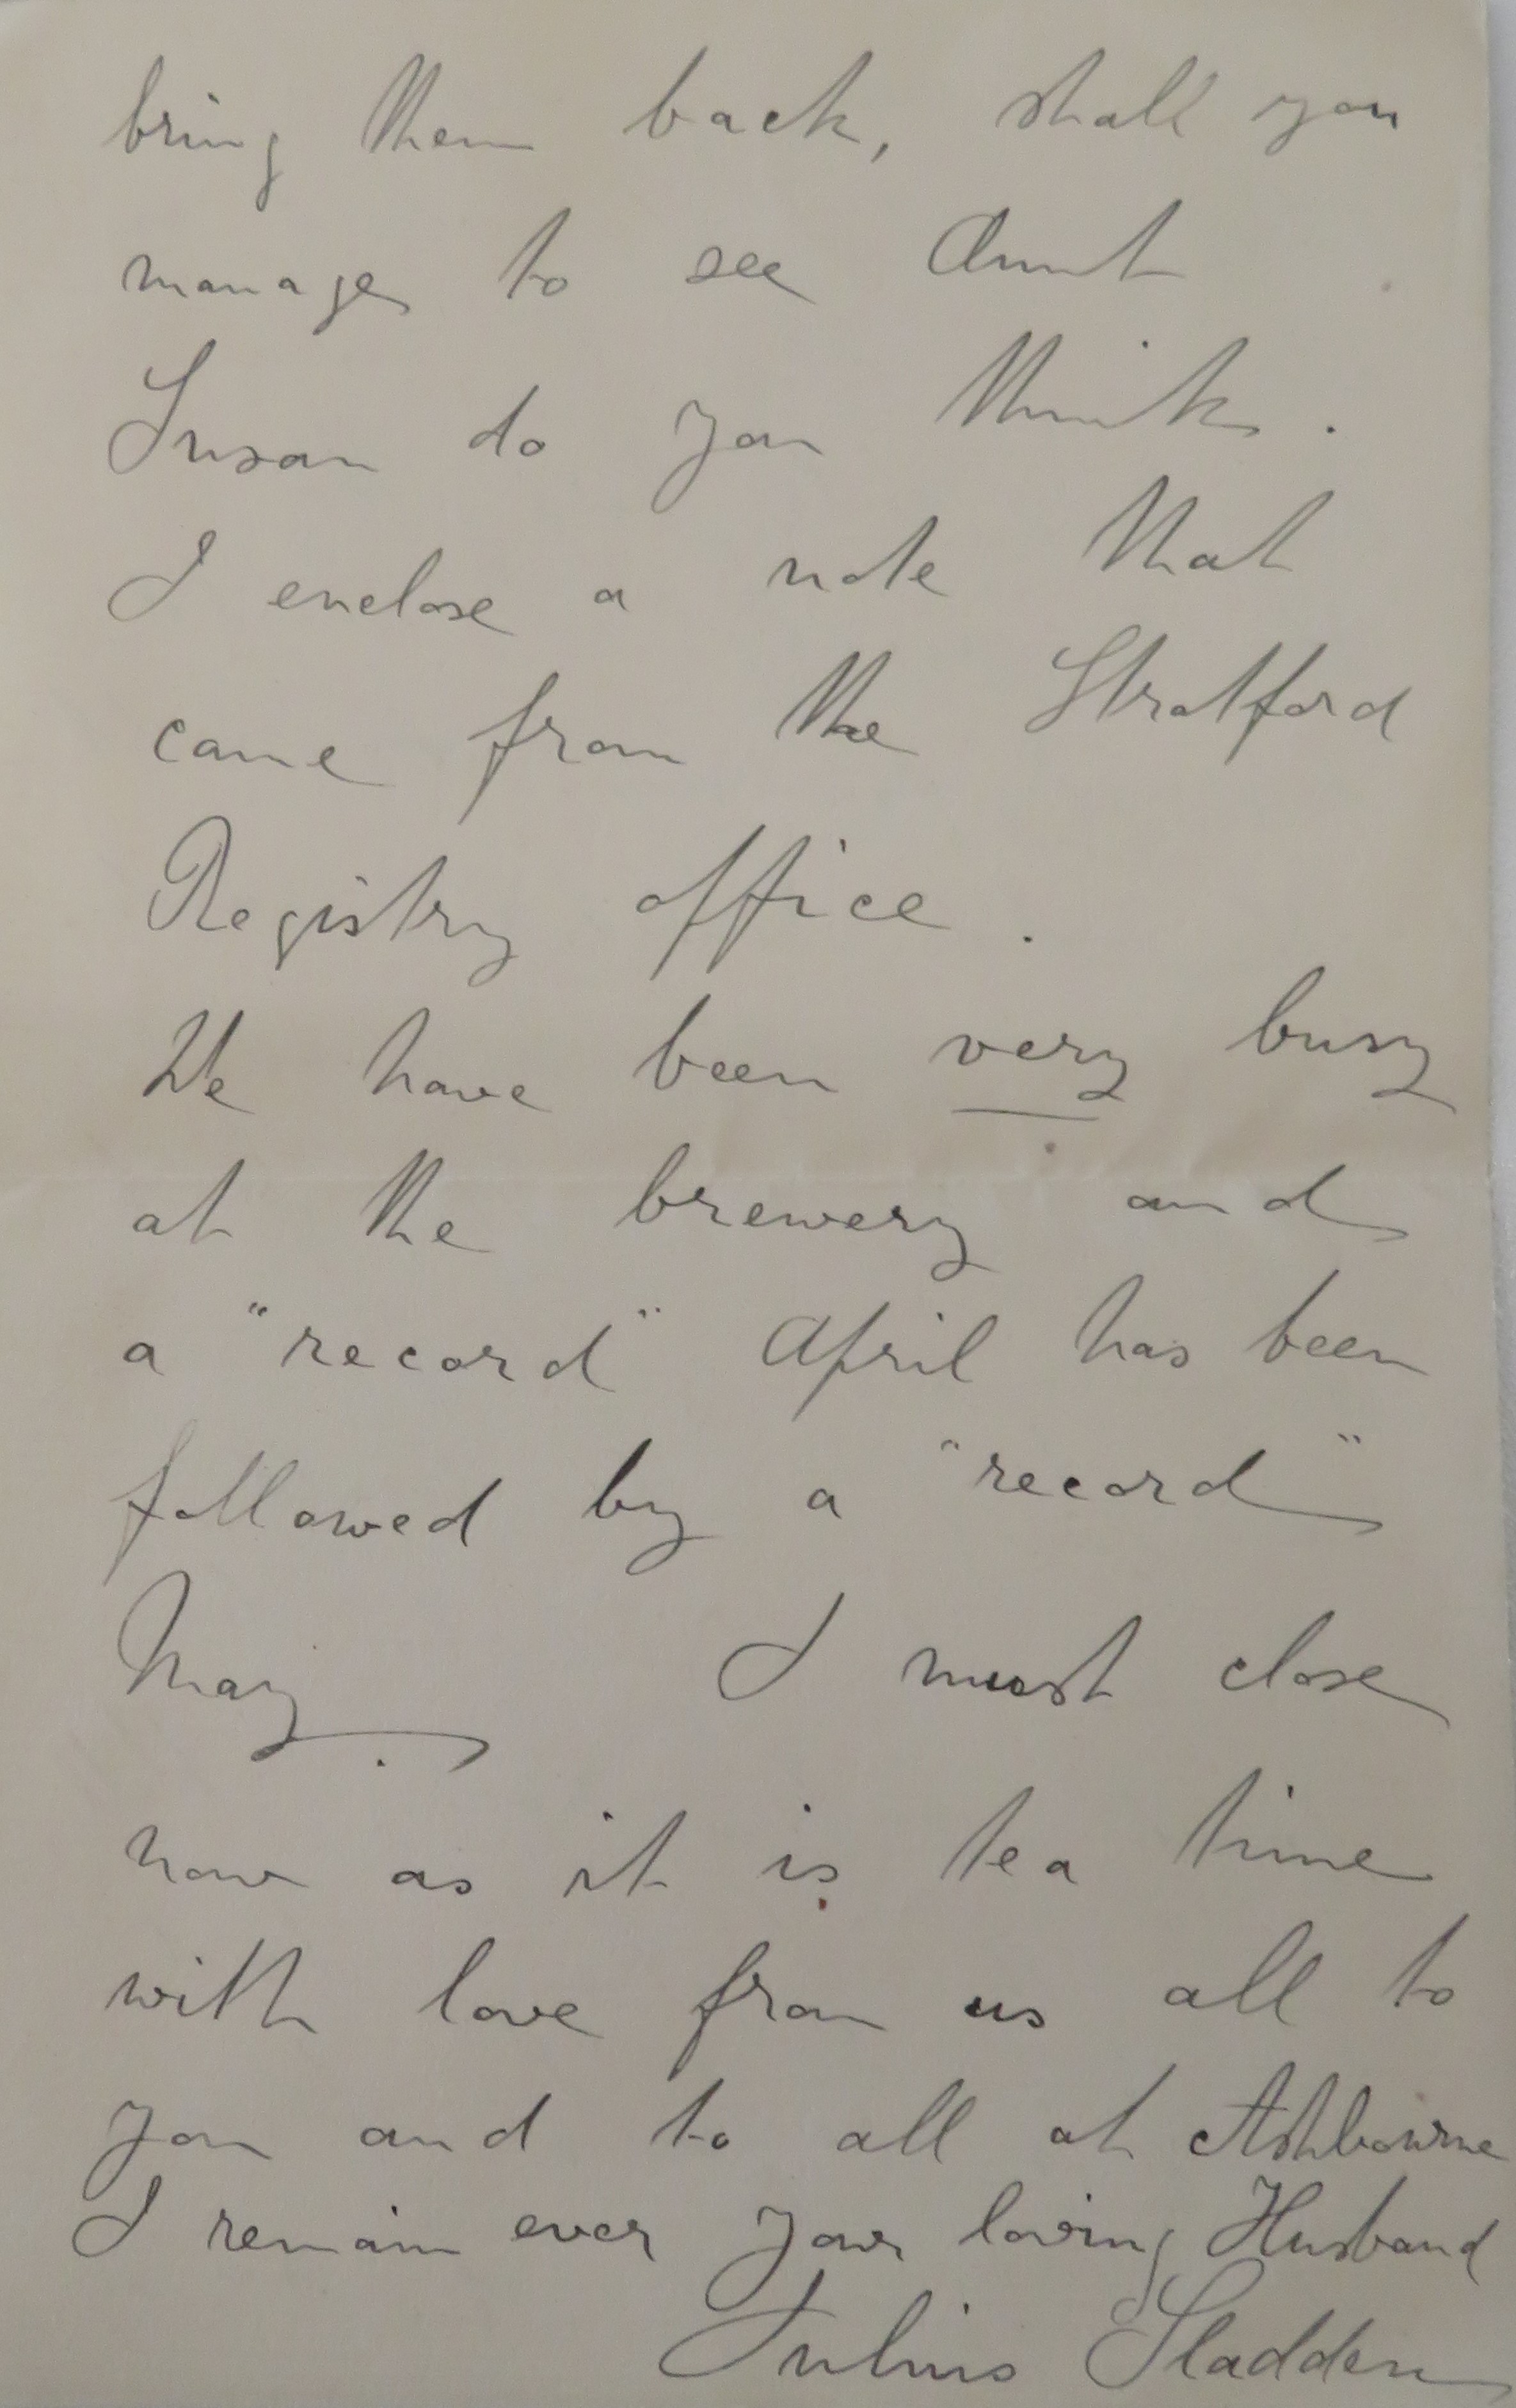 bring them back, shall you
manage to see Aunt
Susan do you think.
I enclose a note that
came from the Stratford
Registry office.
We have been very busy
at the brewery and
a "record" April has been
followed by a "record"
May. I must close
now as it is tea time
with love from us all to
you and to all at Ashbourne
I remain ever your loving Husband
Julius Sladden